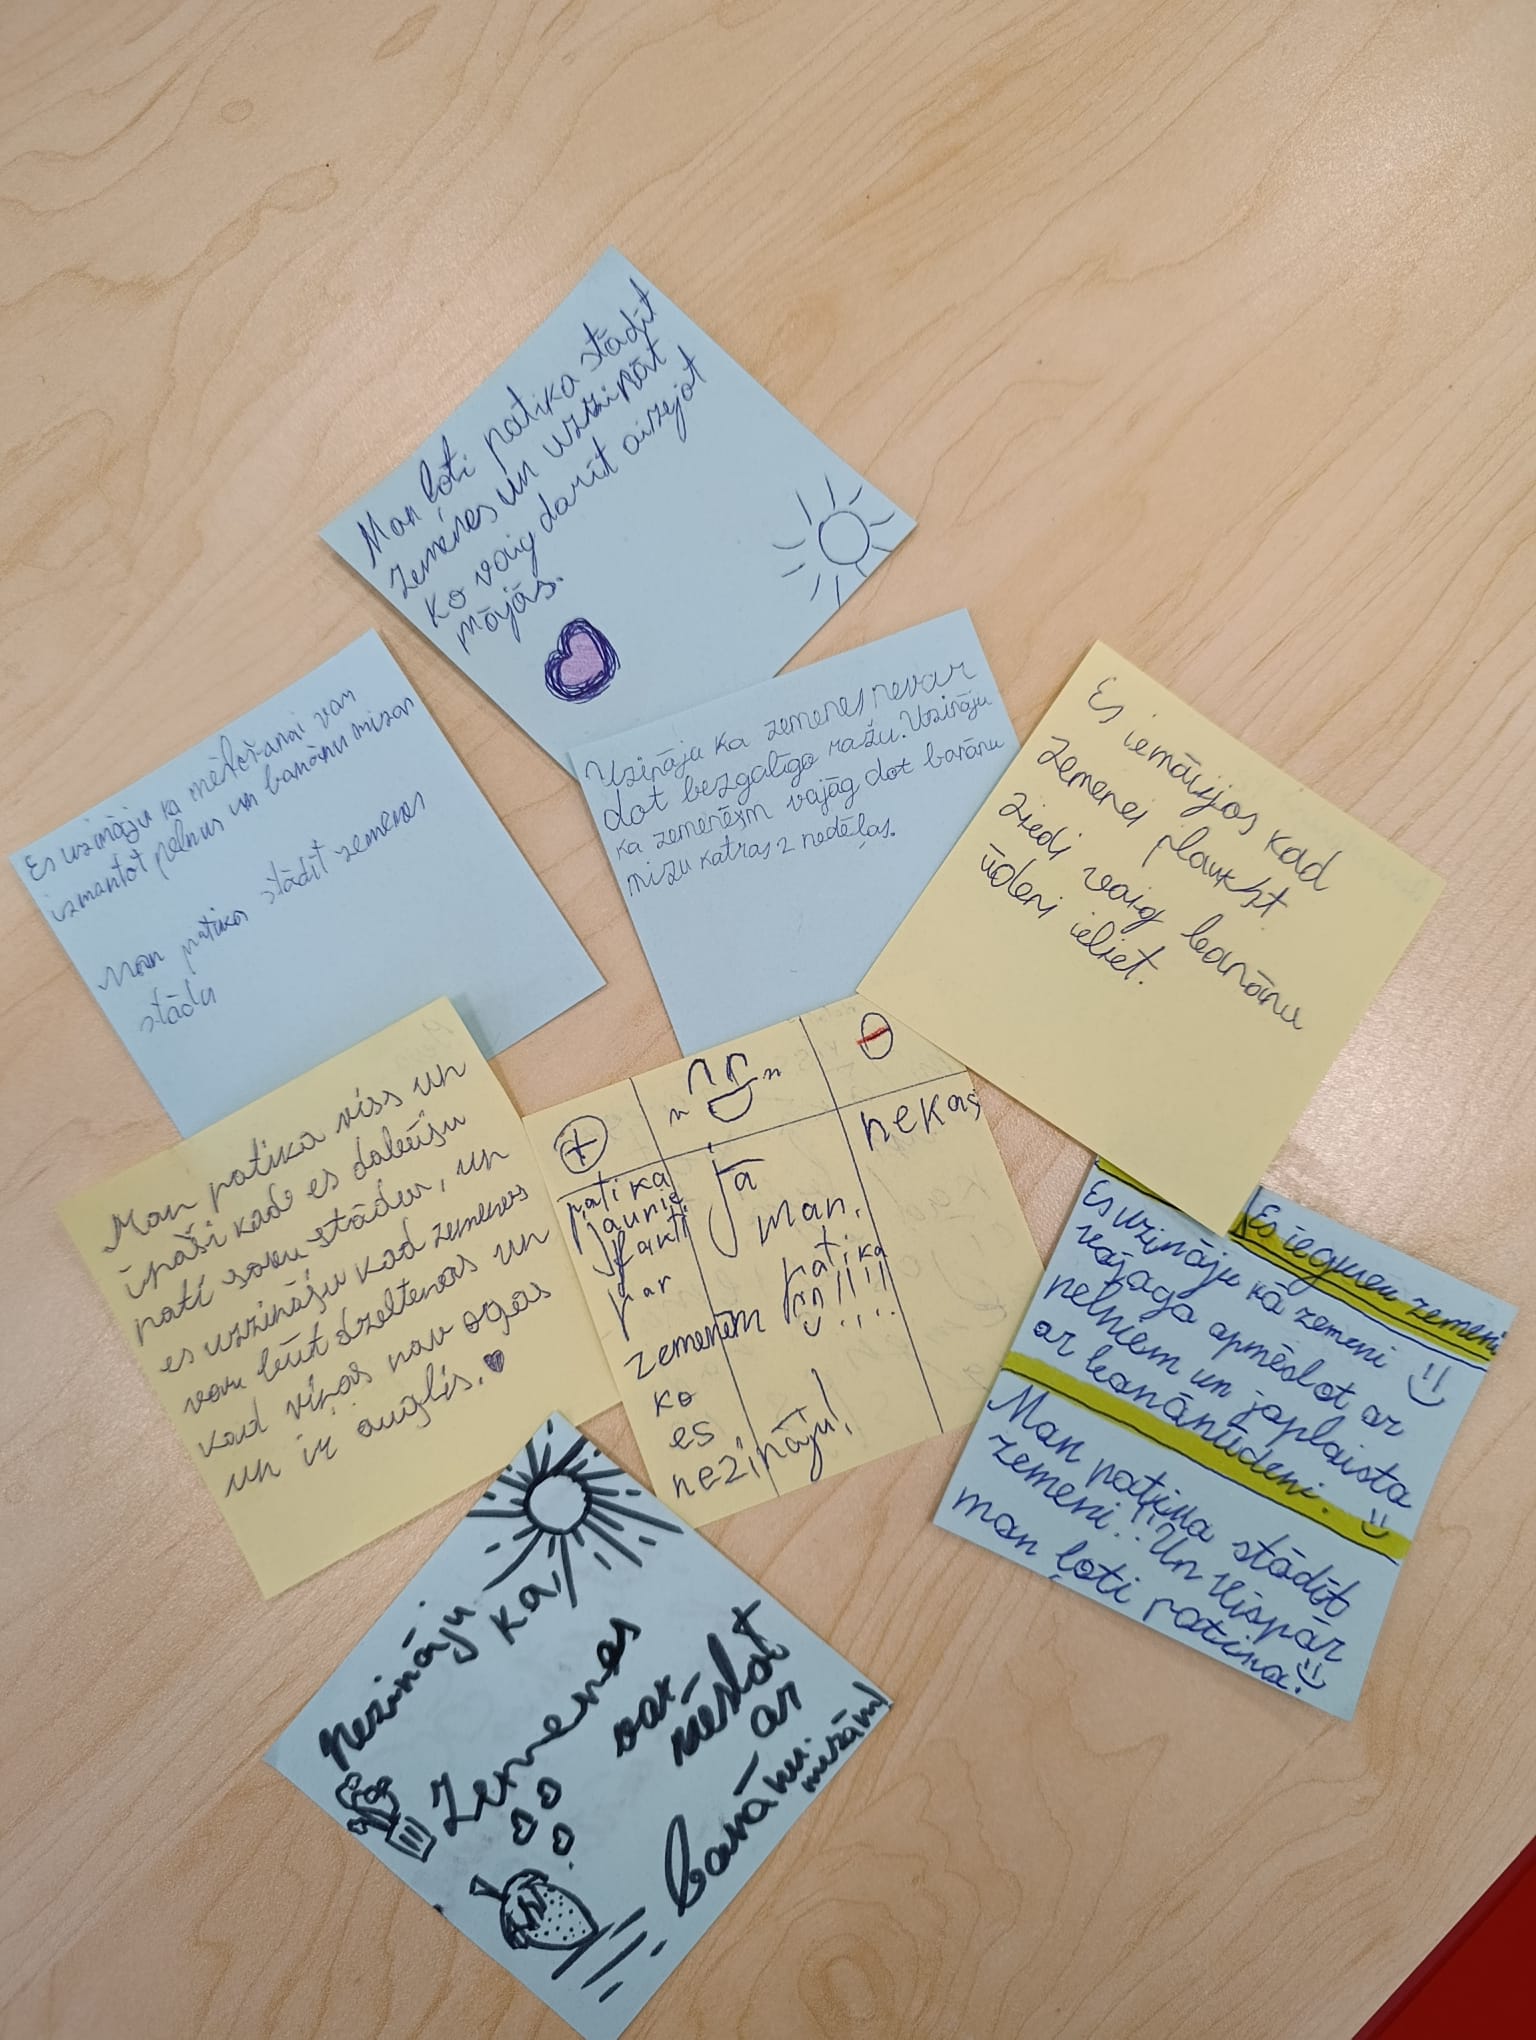 Man ļoti patika stādīt
zemenes un uzzināt
ko vaig darīt aizejot
mājās.
Es uzzināju ka mēslošanai var
izmantot pelnus un banānu mizas
Man patika stādīt zemenes
stādu
Uzzināju ka zemenes nevar
dot bezgalīgo ražu. Uzzināju
ka zemenēm vajāg dot banānu
mizu katras 2 nedēļas.
Es iemāvijos kad
zemenei plaukst
ziedi vaig banānu
ūdeni ieliet.
Man patika viss un
īpaši kad es dabūju
pati savu stādu, un
es uzzināju kad zemenes
var būt dzeltenas un
kad viņas nav ogas
un ir auglis.
+
n n
-
patika
jaunie
fakti
par
zemenēm
ko
es
nezināju!
Jā
man,
patika
!!!!...
nekas
Es ieguvu zemeni
Es uzzināju kā zemeni
vajaga apmēslot ar
pelniem un japlaista
ar banānūdeni.
Man patika stādīt
zemeni!! Un vispār
man ļoti patika!
Nezināju
ka
Zemenes
var
mēslot
ar
banānu
mizām!